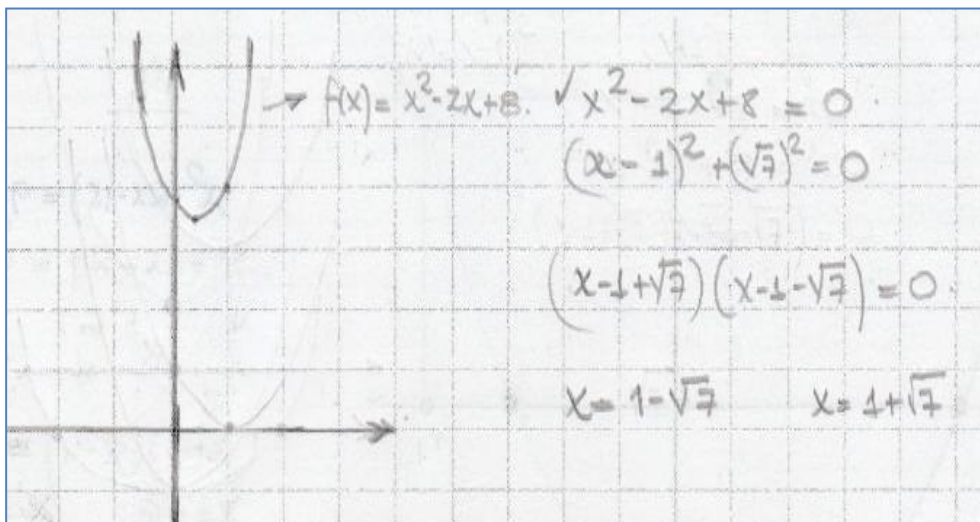 f(x) = x²-2x+8. ✓ x² - 2x + 8 = 0.
(x - 1)² + (√7)² = 0
(x-1+√7)(x-1-√7) = 0.
x = 1-√7 x = 1+√7